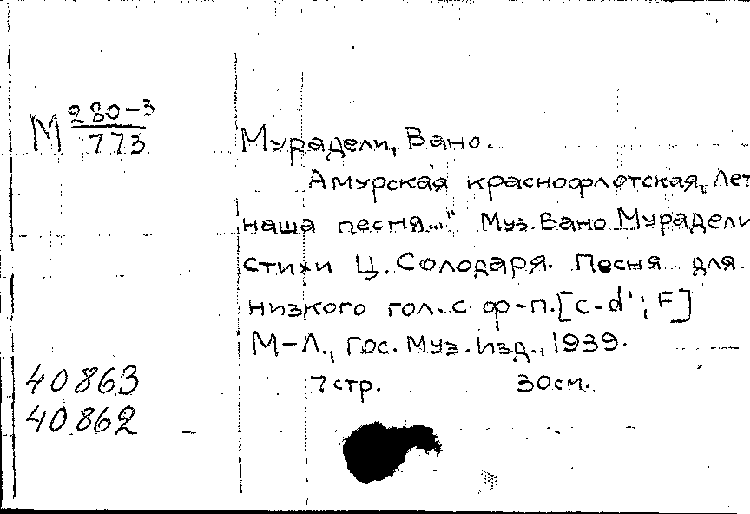 М 280-3
773
Мурадели, Вано.
Амурская краснофлотская, „Лет
наша песня..." Муз. Вано Мурадели
стихи Ц. Солодаря. Песня для
низкого гол. с ф-п. [c-d'; F]
М-Л., Гос. Муз. изд., 1939.
7 стр. 30 см.
40863
40862